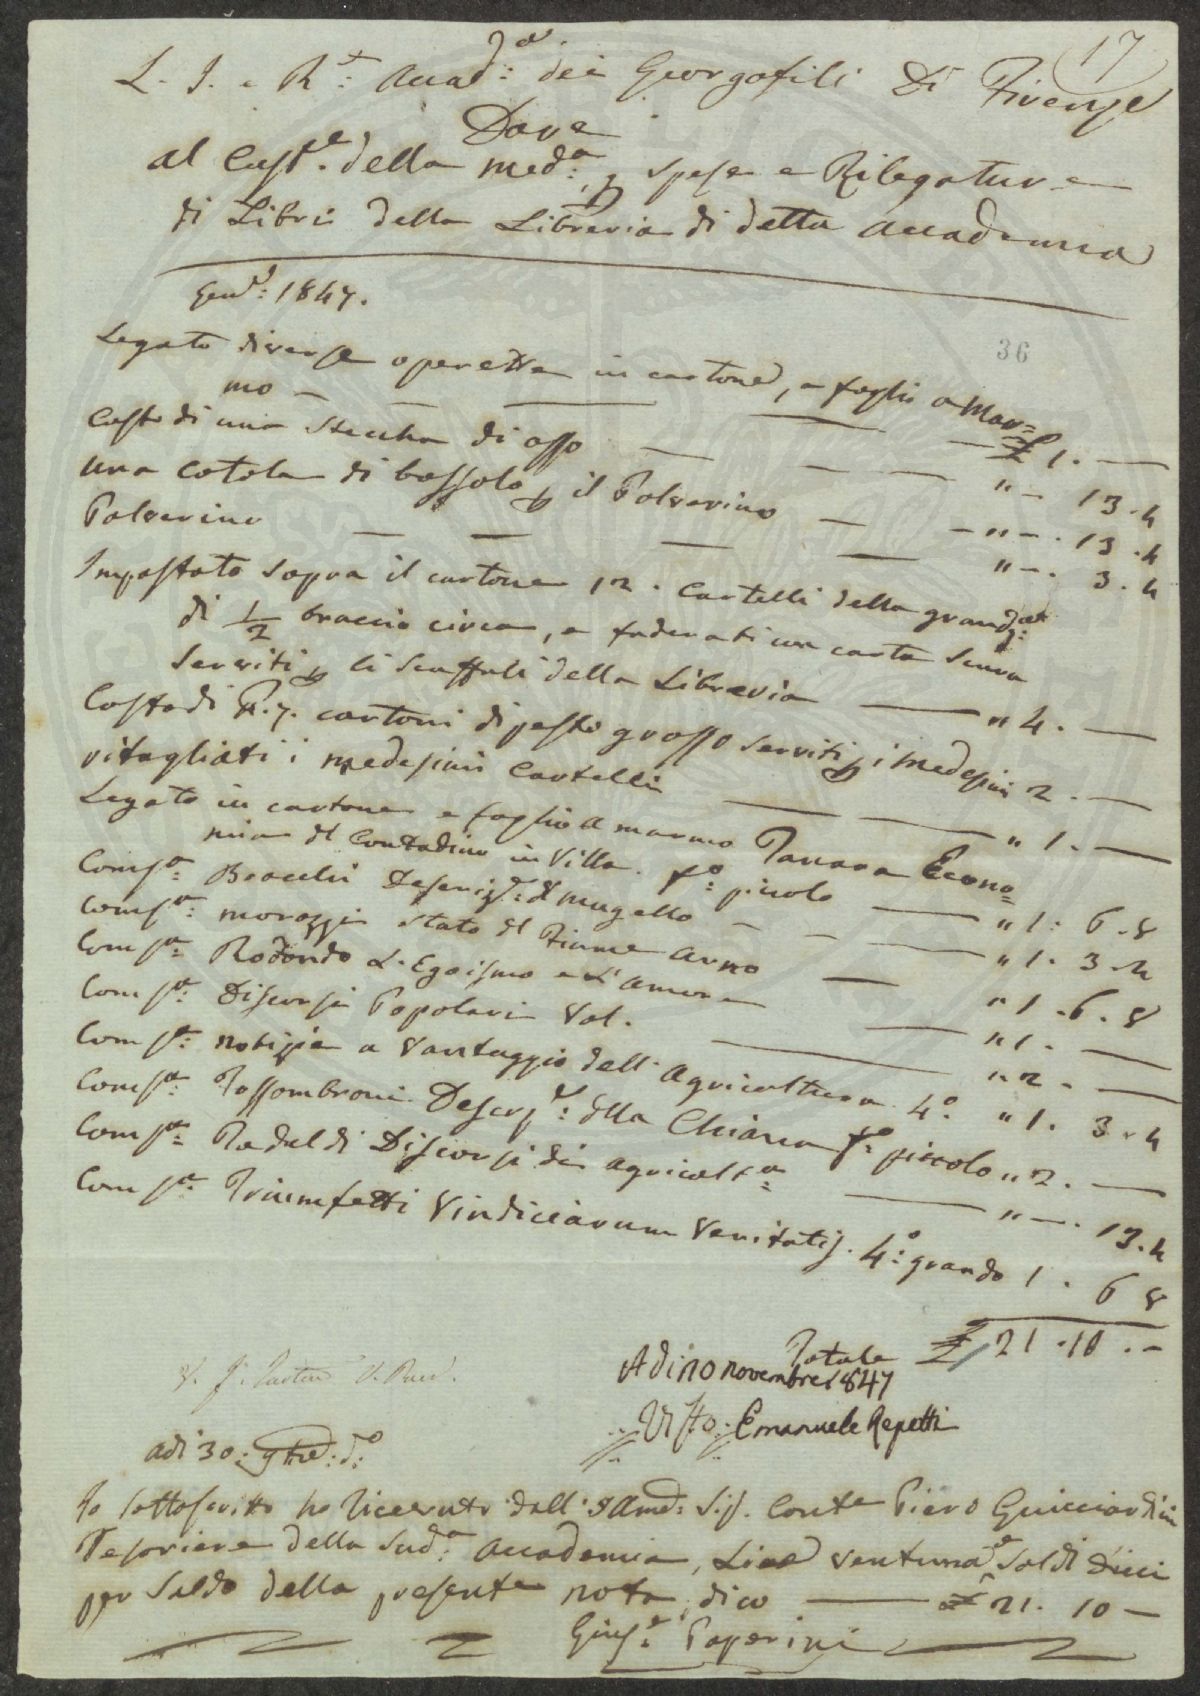 17
L. I. e R.t: Accad.a: dei Georgofili di Firenze
Dare
al Cust.e della med.a: p spese e Rilegature
di Libri della Libreria di detta Accademia
Gen.o: 1847.
36
Legato diverse operette in cartone, e foglio a Mar=
mo — — — — £ 1. —
Costo di una stecha di osso — — — " — 13. 4
una cotola di bossolo p il Polverino — — " — . 13. 4
Polverino — — — — " — . 3. 4
Impastato sopra il cartone 12. Cartelli della grandz.a:
di 1/2 braccio circa, e foderati con carta scura
serviti p li scaffali della Libreria — " 4. —
Costo di N. 7. cartoni di pesto grosso serviti p i medesimi 2. —
ritagliati i medesimi Cartelli — — " 1. —
Legato in cartone e foglio a marmo Tanara Econo=
mia del Contadino in Villa. f.o: piccolo — " 1: 6. 8
Comp.a: Bracchi Descriz.e: di Mugello — — — " 1. 3. 4
Comp.a: Morozzi stato del Fiume Arno — " 1. 6. 8
Comp.a: Rotondo L'Egoismo e L'amore — " 1. —
Comp.a: Discorsi Popolari Vol. — " 2. —
Comp.a: notizie a Vantaggio dell'agricoltura 4.o " 1. 3. 4
Comp.a: Fossombroni Descriz.e: della Chiana f.o: piccolo " 2. —
Comp.a: Radaldi Discorsi di agricolt.a — " — . 13. 4
Comp.a: Triumfetti Vindiciarum Veritatis. 4.o: grande 1. 6 8
Totale £ 21. 10. —
Adi 10 novembre 1847
Visto: Emanuele Repetti
adi 30: 9bre: d.o:
Io sottoscritto ho ricevuto dall' Sig. Conte Piero Guicciardini
Tesoriere della Sud.a: Accademia, Lire ventuna e Soldi dieci
per Saldo della presente nota, dico — £ 21. 10 —
Gius.e: Paperini